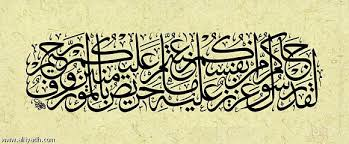 لقد جاءكم رسول من أنفسكم عزيز عليه ما عنتم حريص عليكم بالمؤمنين رؤوف رحيم
www.alriyadh.com